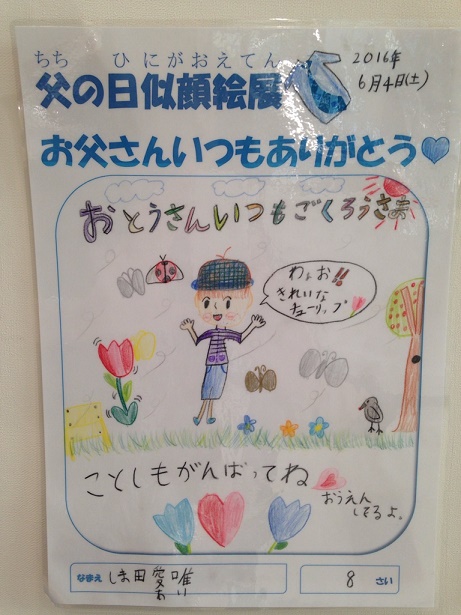 ちち ひ にがおえてん
父の日似顔絵展
2016年
6月4日(土)
お父さんいつもありがとう
おとうさんいつもごくろうさま
わぁお!!
きれいな
チューリップ
ことしもがんばってね
おうえん
してるよ。
なまえ しま田 愛唯
あい
8 さい